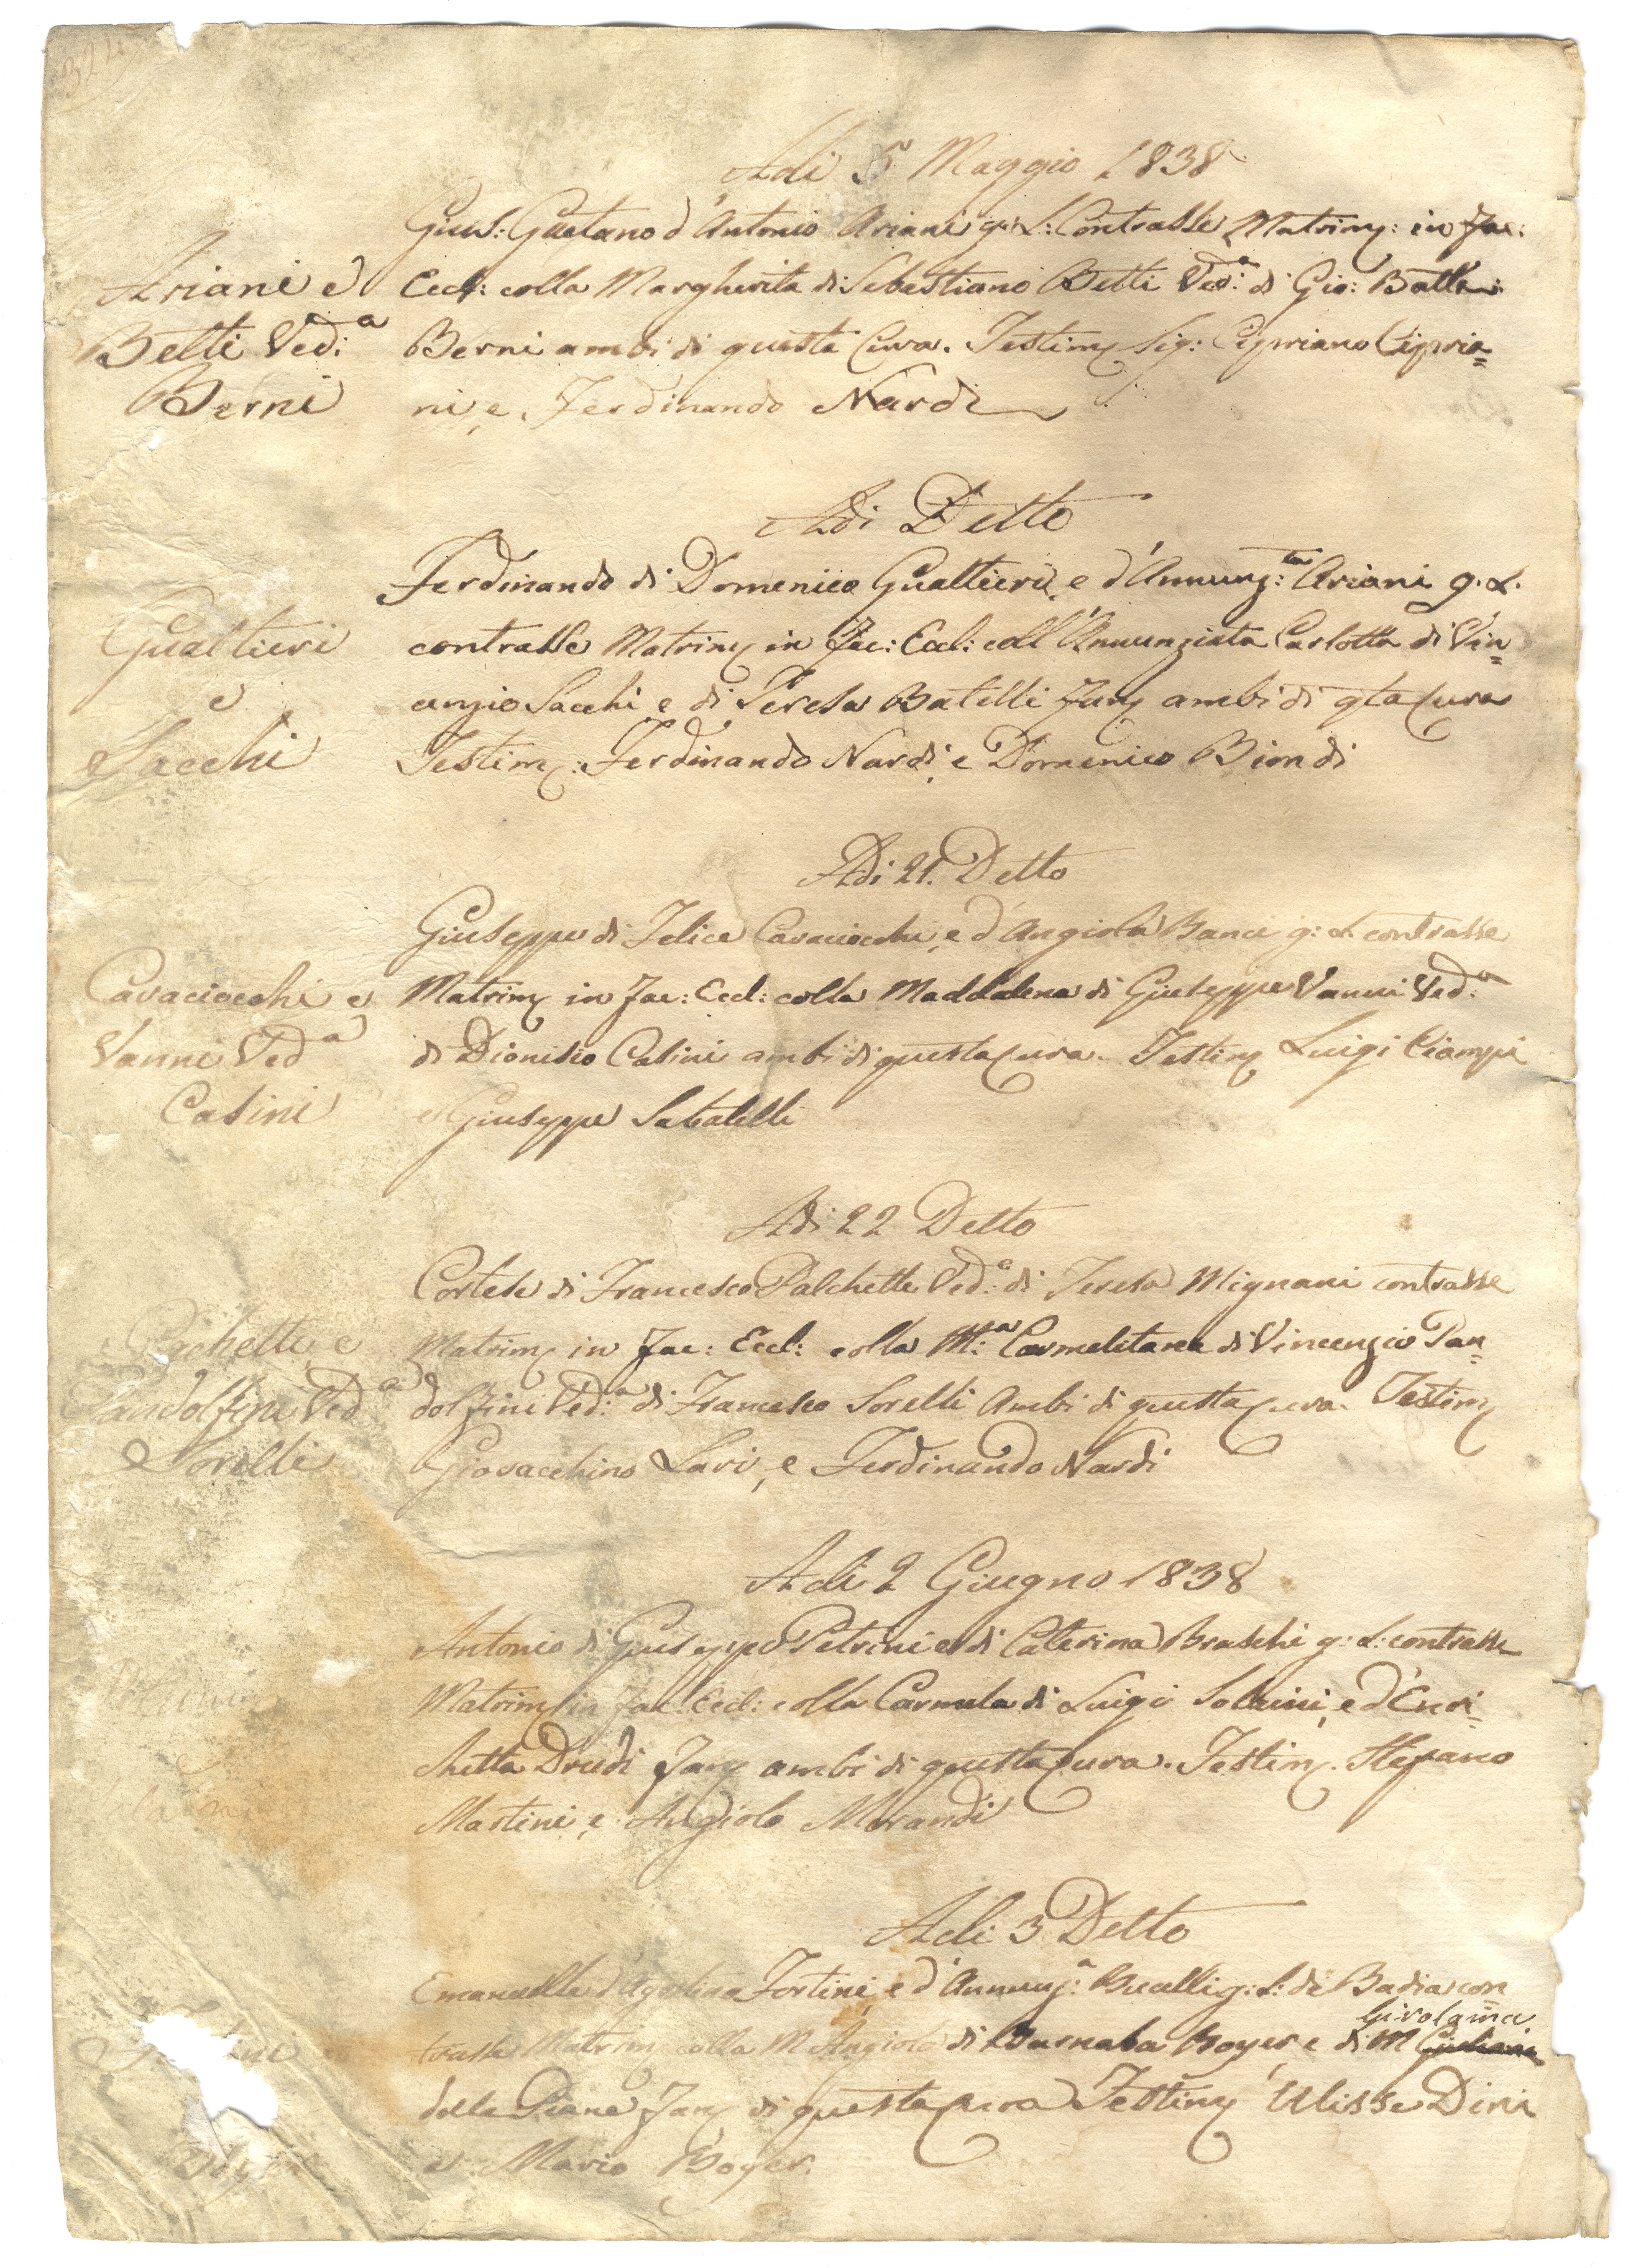 Adi 5 Maggio 1838
Gius: Gaetano d'Antonio Ariani g: L: Contrasse Matrim: in Fac:
Ariani e
Eccl: colla Margherita di Sebastiano Betti Ved:a di Gio: Batta:
Betti Ved:a
Berni ambi di questa Cura. Testim Sig: Cipriano Cipria=
Berni
ni, e Ferdinando Nardi
Adi Detto
Ferdinando di Domenico Gualtieri, e d'Annunz:ta Ariani g. L.
Gualtieri
contrasse Matrim in Fac: Eccl: coll'Annunziata Carlotta di Vin=
e
cenzio Sacchi e di Teresa Batelli Fan ambi di qta Cura
Sacchi
Testim: Ferdinando Nardi, e Domenico Biondi
Adi 21. Detto
Giuseppe di Felice Cavaciocchi, e d'Angiola Banci g: L. contrasse
Cavaciocchi e
Matrim in Fac: Eccl: colla Maddalena di Giuseppe Vanni Ved:a
Vanni Ved a
di Dionisio Casini ambi di questa Cura. Testim Luigi Ciampi
Casini
e Giuseppe Sabatelli
Adi 22 Detto
Cortese di Francesco Palchette Ved:o di Teresa Mignani contrasse
Pachetti e
Matrim in Fac: Eccl: colla M:a Carmelitana di Vincenzio Pan=
Pandolfini Ved a
dolfini Ved:a di Francesco Sorelli Ambi di questa Cura. Testim
Sorelli
Giovacchino Lari, e Ferdinando Nardi
Adi 2 Giugno 1838
Antonio di Giuseppe Petrini e di Caterina Braschi g: L: contrasse
Matrim in Fac: Eccl: colla Carmela di Luigi Salvini, e d'Enri=
chetta Drudi Fan ambi di questa Cura. Testim. Stefano
Martini e Angiolo Morandi
Adi 3 Detto
Emanuelle d'Agostino Fortini, e d'Annunz:a Bucelli g: L: di Badia con
Girolama
trasse Matrim colla M Angiola di Barnaba Boyer e di M Giuliana
della Piane Fan di questa Cura Testim Ulisse Dini
Boyer
e Mario Boyer.